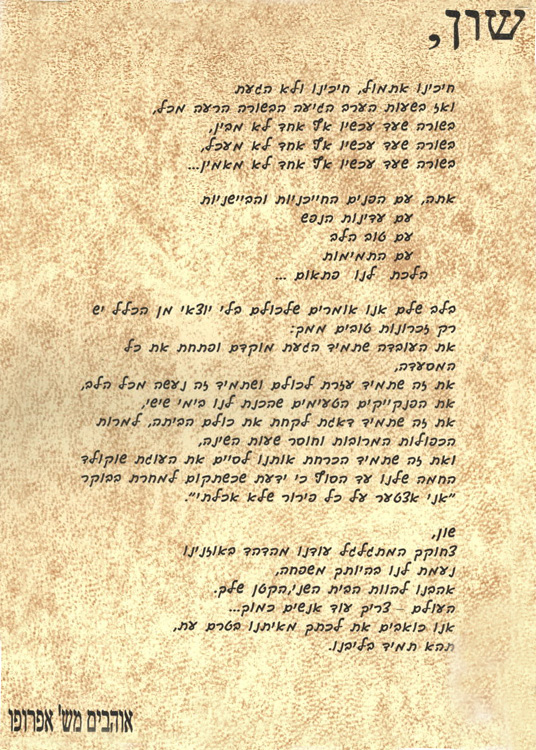 שון,
חיכינו אתמול, חיכינו ולא הגעת
ואז בשעות הערב הגיעה הבשורה הרעה מכל,
בשורה שעד עכשיו אף אחד לא מבין,
בשורה שעד עכשיו אף אחד לא מעכל,
בשורה שעד עכשיו אף אחד לא מאמין...
אתה, עם הפנים החייכניות והביישניות
עם עדינות הנפש
עם טוב הלב
עם התמימות
הלכת לנו פתאום ...
בלב שלם אנו אומרים שלכולם בלי יוצאי מן הכלל יש
רק זכרונות טובים ממך:
את העובדה שתמיד הגעת מוקדם ופתחת את כל
המסעדה,
את זה שתמיד עזרת לכולם ושתמיד זה נעשה מכל הלב,
את הפנקייקים הטעימים שהכנת לנו בימי שישי,
את זה שתמיד דאגת לקחת את כולם הביתה, למרות
הכפולות המרובות וחוסר שעות השינה,
ואת זה שתמיד הכרחת אותנו לסיים את העוגת שוקולד
החמה שלנו עד הסוף כי ידעת שכשתקום למחרת בבוקר
"אני אצטער על כל פירור שלא אכלתי".
שון,
צחוקך המתגלגל עודנו מהדהד באוזנינו
נעמת לנו בהיותך משפחה,
אהבנו להוות הבית השני,הקטן שלך.
העולם – צריך עוד אנשים כמוך...
אנו כואבים את לכתך מאיתנו בטרם עת,
תהא תמיד בליבנו.
אוהבים מש' אפרופו